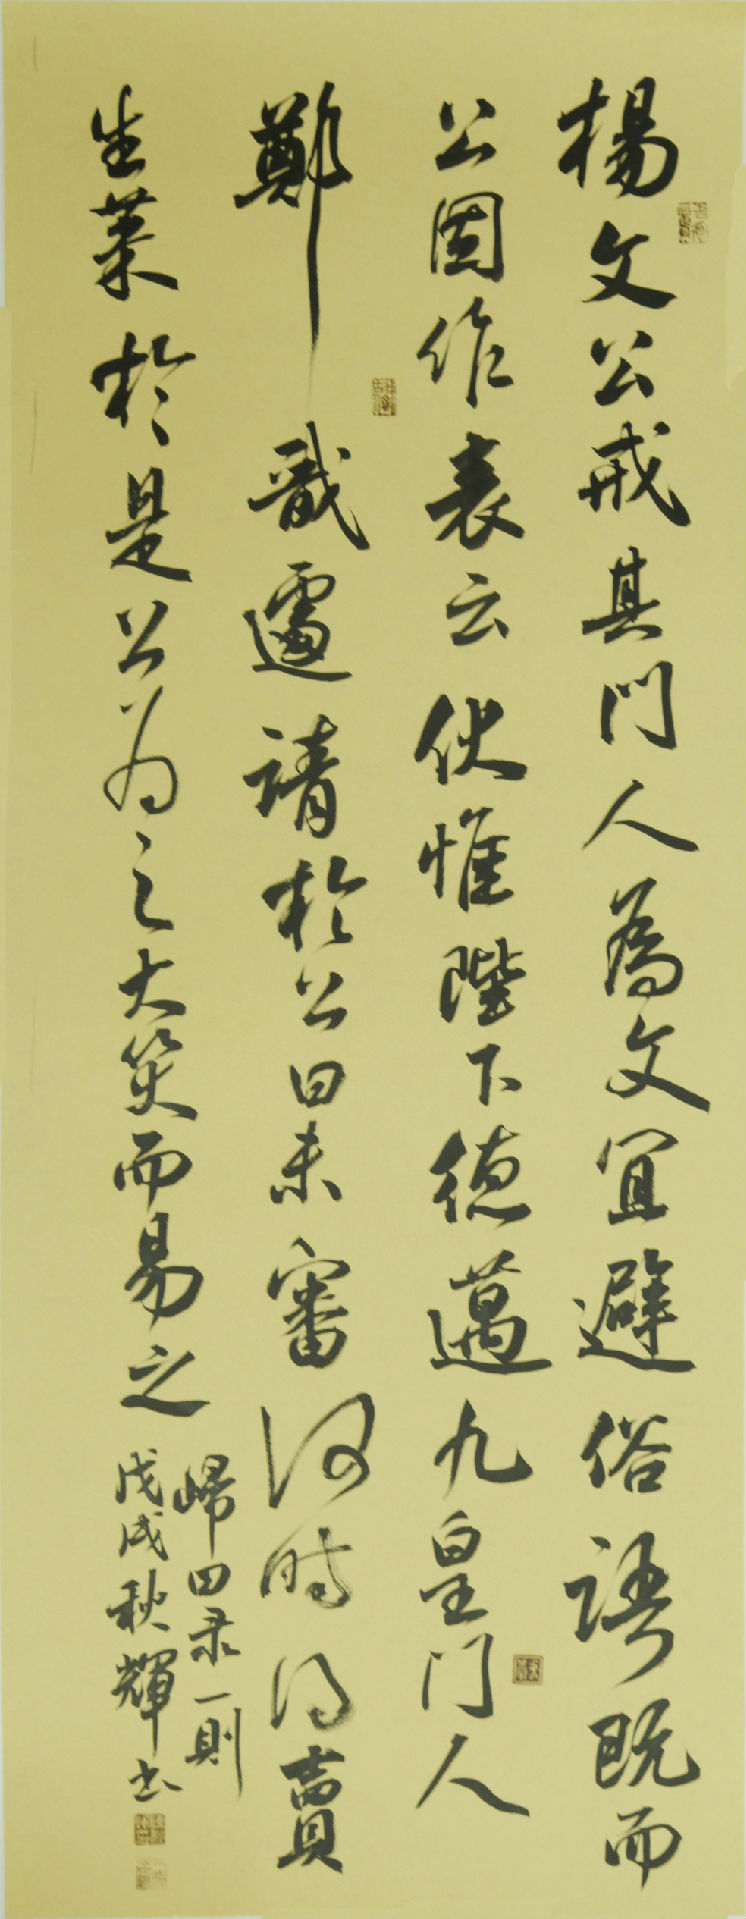 楊文公戒其門人為文宜避俗語既而
公因作表云伏惟陛下德邁九皇門人
鄭戩遽請於公曰未審何時得賣
生菜於是公為之大笑而易之
歸田录一則
戊戌秋輝书